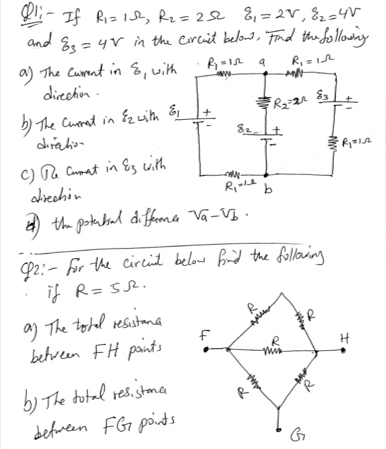 Q1:- If R₁=1Ω, R₂=2Ω ℰ₁=2V, ℰ₂=4V
and ℰ₃=4V in the circuit below. Find the following
a) The Current in ℰ₁ with
direction.
b) The Current in ℰ₂ with
direction
c) The Current in ℰ₃ with
direction
d) the potential difference Va-Vb.
R₁=1Ω a R₁=1Ω
R₂=2Ω ℰ₃ +
-
ℰ₁ +
-
ℰ₂ +
-
R₁=1Ω
R₁=1Ω b
Q2:- For the circuit below find the following
if R=5Ω.
a) The total resistance
between FH points
b) The total resistance
between FG points
R R
F R H
R R
G